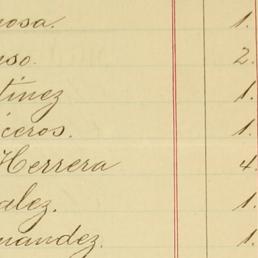 nosa. 1.
uso. 2.
tinez 1.
iceros. 1.
Herrera 4.
alez. 1.
nandez. 1.